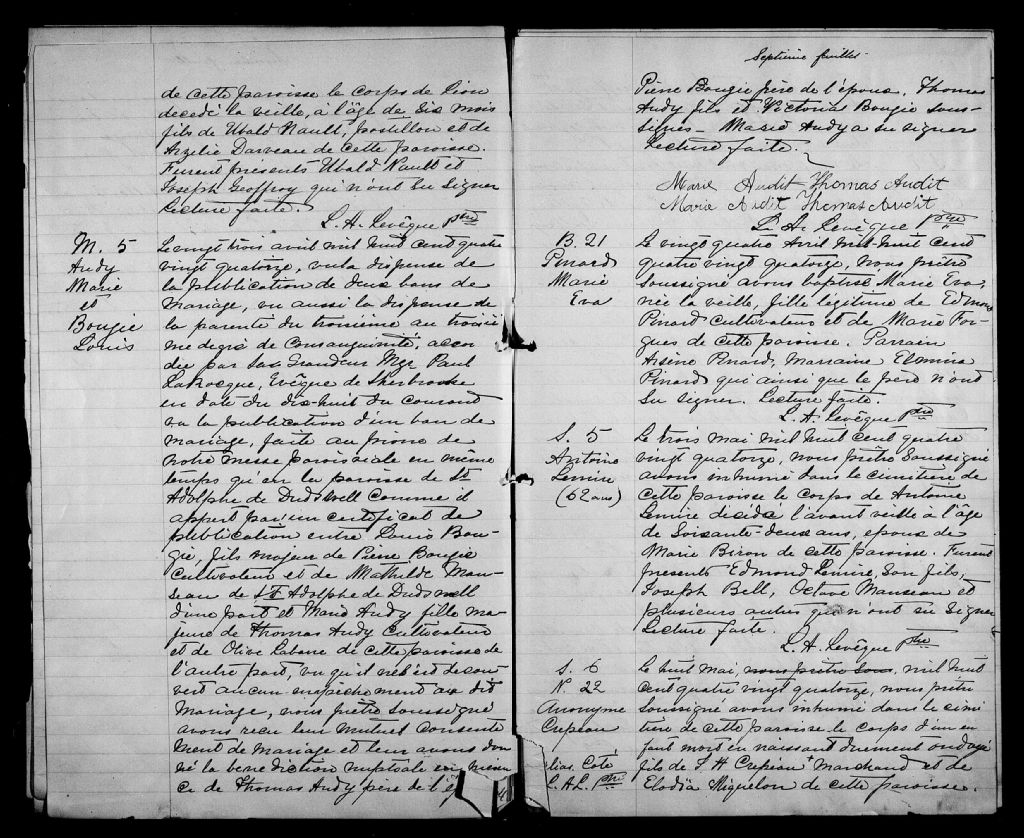 de cette paroisse le corps de Lion
decedé la veille, à l'âge de six mois
fils de Ubald Nault, postillon et de
Arzelie Darveau de cette paroisse.
Furent présents Ubald Nault et
Joseph Geoffroy qui n'ont su signer
Lecture faite.
L. A. Levêque Ptre
M. 5
Audy
Marie
et
Bougie
Louis
Le vingt trois avril mil huit cent quatre
vingt quatorze, vu la dispense de
la publication de deux bans de
mariage, vu aussi la dispense de
la parenté du troisième au troisiè
me degré de consanguinité, accor
dée par Sa Grandeur Mgr Paul
LaRocque, Evêque de Sherbrooke
en date du dix-huit du courant
vu la publication d'un ban de
mariage, faite au prone de
notre messe paroissiale en même
temps qu'en la paroisse de St
Adolphe de Dudswell comme il
appert par un certificat de
publication entre Louis Bou-
gie, fils majeur de Pierre Bougie
cultivateur et de Mathilde Man-
seau de St Adolphe de Dudswell
d'une part et Marie Audy fille ma-
jeure de Thomas Audy cultivateur
et de Olive Labarre de cette paroisse de
l'autre part, vu qu'il ne s'est decou-
vert aucun empêchement au dit
mariage, nous prêtre soussigné
avons reçu leur mutuel consente
ment de mariage et leur avons don
né la bénédiction nuptiale en présen
ce de Thomas Audy père de l'é
Septième feuillet
Pierre Bougie père de l'époux, Thomas
Audy fils et Victorias Bougie sous-
signés - Marie Audy a su signer
Lecture faite.
Marie Audit Thomas Audit
Marie Audit Thomas Audit
L. A. Levêque Ptre
B. 21
Pinard
Marie
Eva
Le vingt quatre Avril mil-huit cent
quatre vingt quatorze, nous prêtre
soussigné avons baptisé Marie Eva
née la veille, fille légitime de Edmond
Pinard cultivateur et de Marie For-
gues de cette paroisse. Parrain
Arsène Pinard, Marraine Elmina
Pinard qui ainsi que le père n'ont
su signer. Lecture faite.
L. A. Levêque Ptre
S. 5
Antoine
Lemire
(62 ans)
Le trois mai mil huit cent quatre
vingt quatorze, nous prêtre soussigné
avons inhumé dans le cimetière de
cette paroisse le corps de Antoine
Lemire décédé l'avant veille à l'âge
de soixante-deux ans, epoux de
Marie Biron de cette paroisse. Furent
présents Edmond Lemire, son fils,
Joseph Bell, Octave Manseau et
plusieurs autres qui n'ont su signer
Lecture faite.
L. A. Levêque Ptre
S. 6
N. 22
Anonyme
Crepeau
alias Coté
L. A. L. Ptre
Le huit mai, nous prêtre sous, mil huit
cent quatre vingt quatorze, nous prêtre
soussigné avons inhumé dans le cime
tière de cette paroisse le corps d'un en
fant mort en naissant dûment ondoyé
fils de F H Crepeau + marchand et de
Elodia Miquelon de cette paroisse.